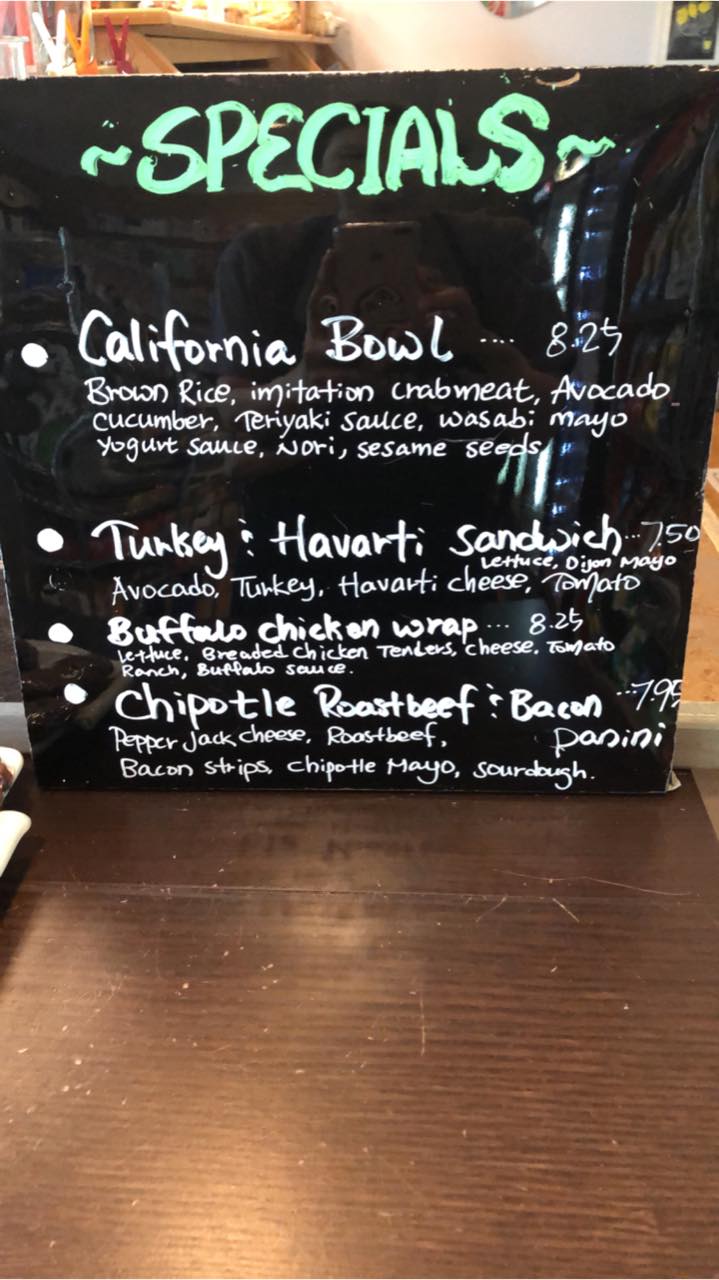 ~SPECIALS~
• California Bowl .... 8.25
Brown Rice, imitation crabmeat, Avocado
cucumber, Teriyaki sauce, wasabi mayo
Yogurt sauce, Nori, sesame seeds
• Turkey & Havarti Sandwich...7.50
Lettuce, Dijon Mayo
Avocado, Turkey, Havarti cheese, Tomato
• Buffalo chicken wrap... 8.25
Lettuce, Breaded Chicken Tenders, cheese, Tomato
Ranch, Buffalo sauce.
• Chipotle Roastbeef & Bacon ...7.95
Pepper Jack cheese, Roastbeef, panini
Bacon strips, chipotle Mayo, sourdough.